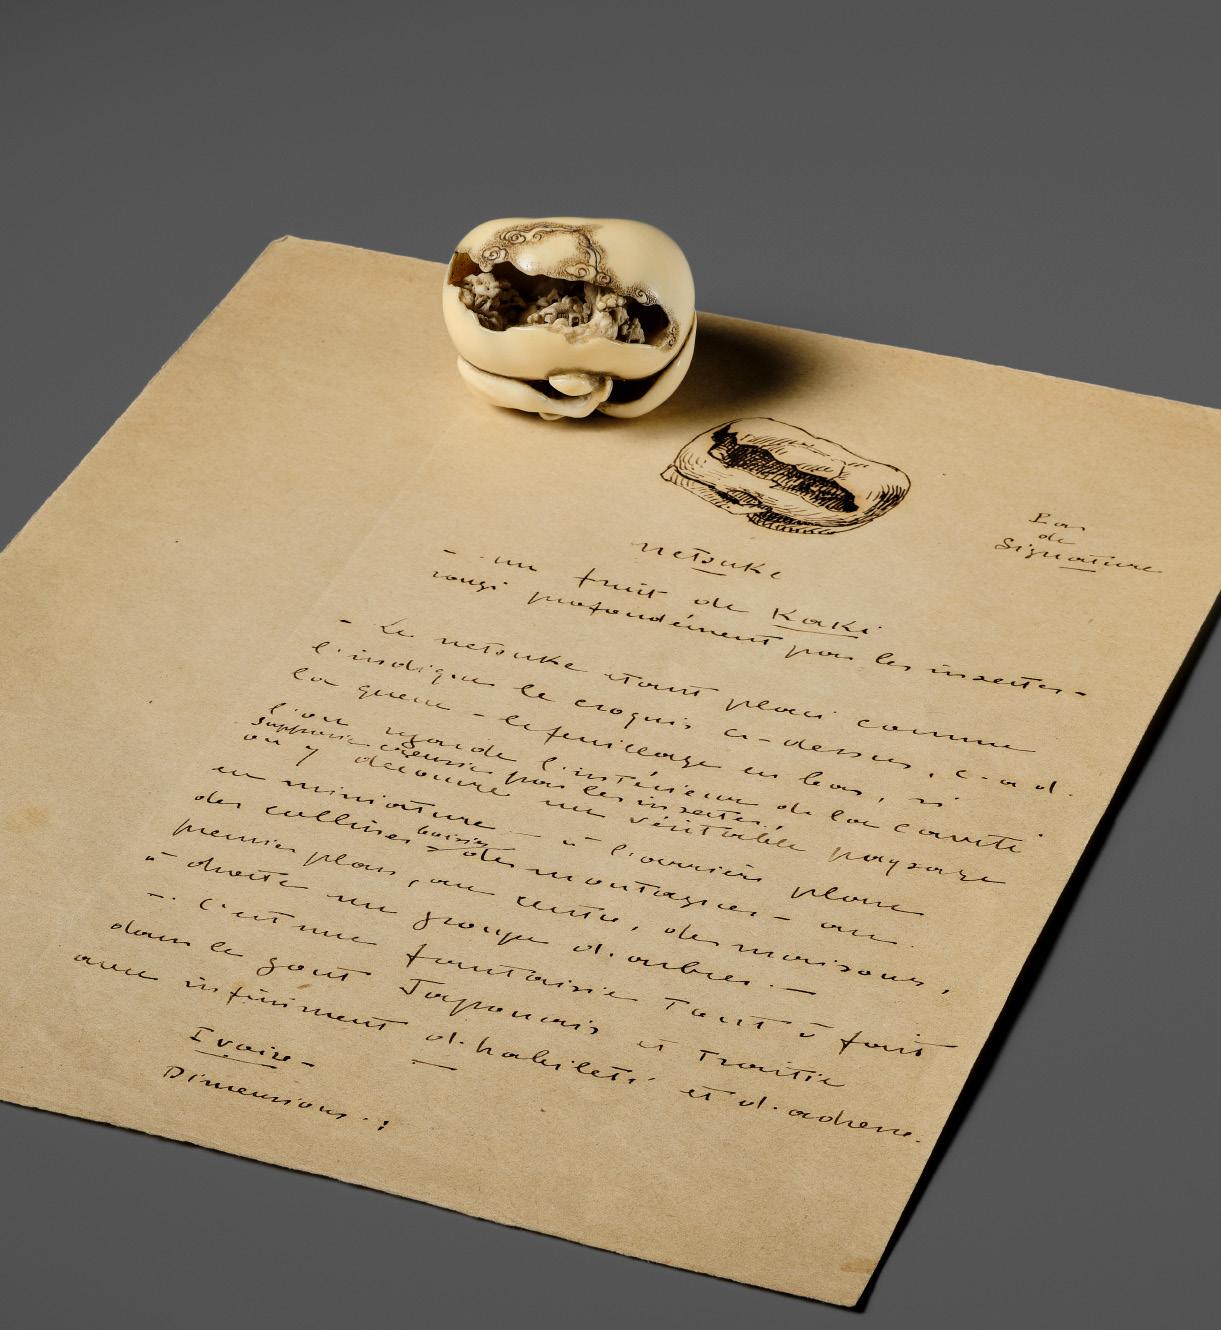 Pas
de
Signature
netsuke
- un fruit de Kaki
rongé profondément par les insectes -
- Le netsuke étant placé comme
l'indique le croquis ci-dessus, c-a d.
la queue - le feuillage en bas, si
l'on regarde l'intérieur de la cavité
supposée creusée par les insectes,
on y découvre un véritable paysage
en miniature - à l'arrière plan
des collines boisées - des montagnes - au
premier plan, au centre, des maisons,
à droite un groupe d'arbres. -
- C'est une fantaisie tout à fait
dans le goût Japonais et traitée
avec infiniment d'habileté et d'adresse.
Ivoire -
Dimensions. :